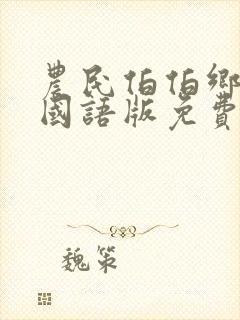 農民伯伯鄉
國語版免費
魏策